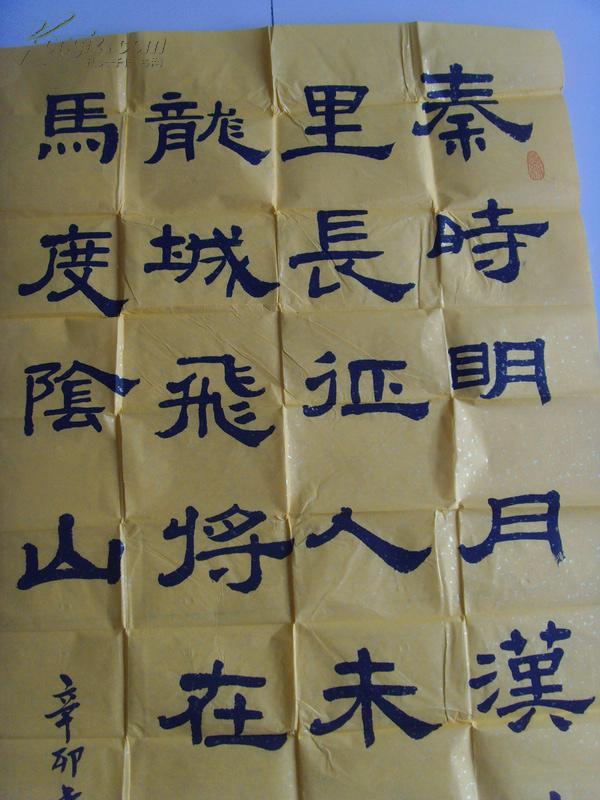 秦時明月漢
里長征人未
龍城飛将在
馬度陰山
辛卯